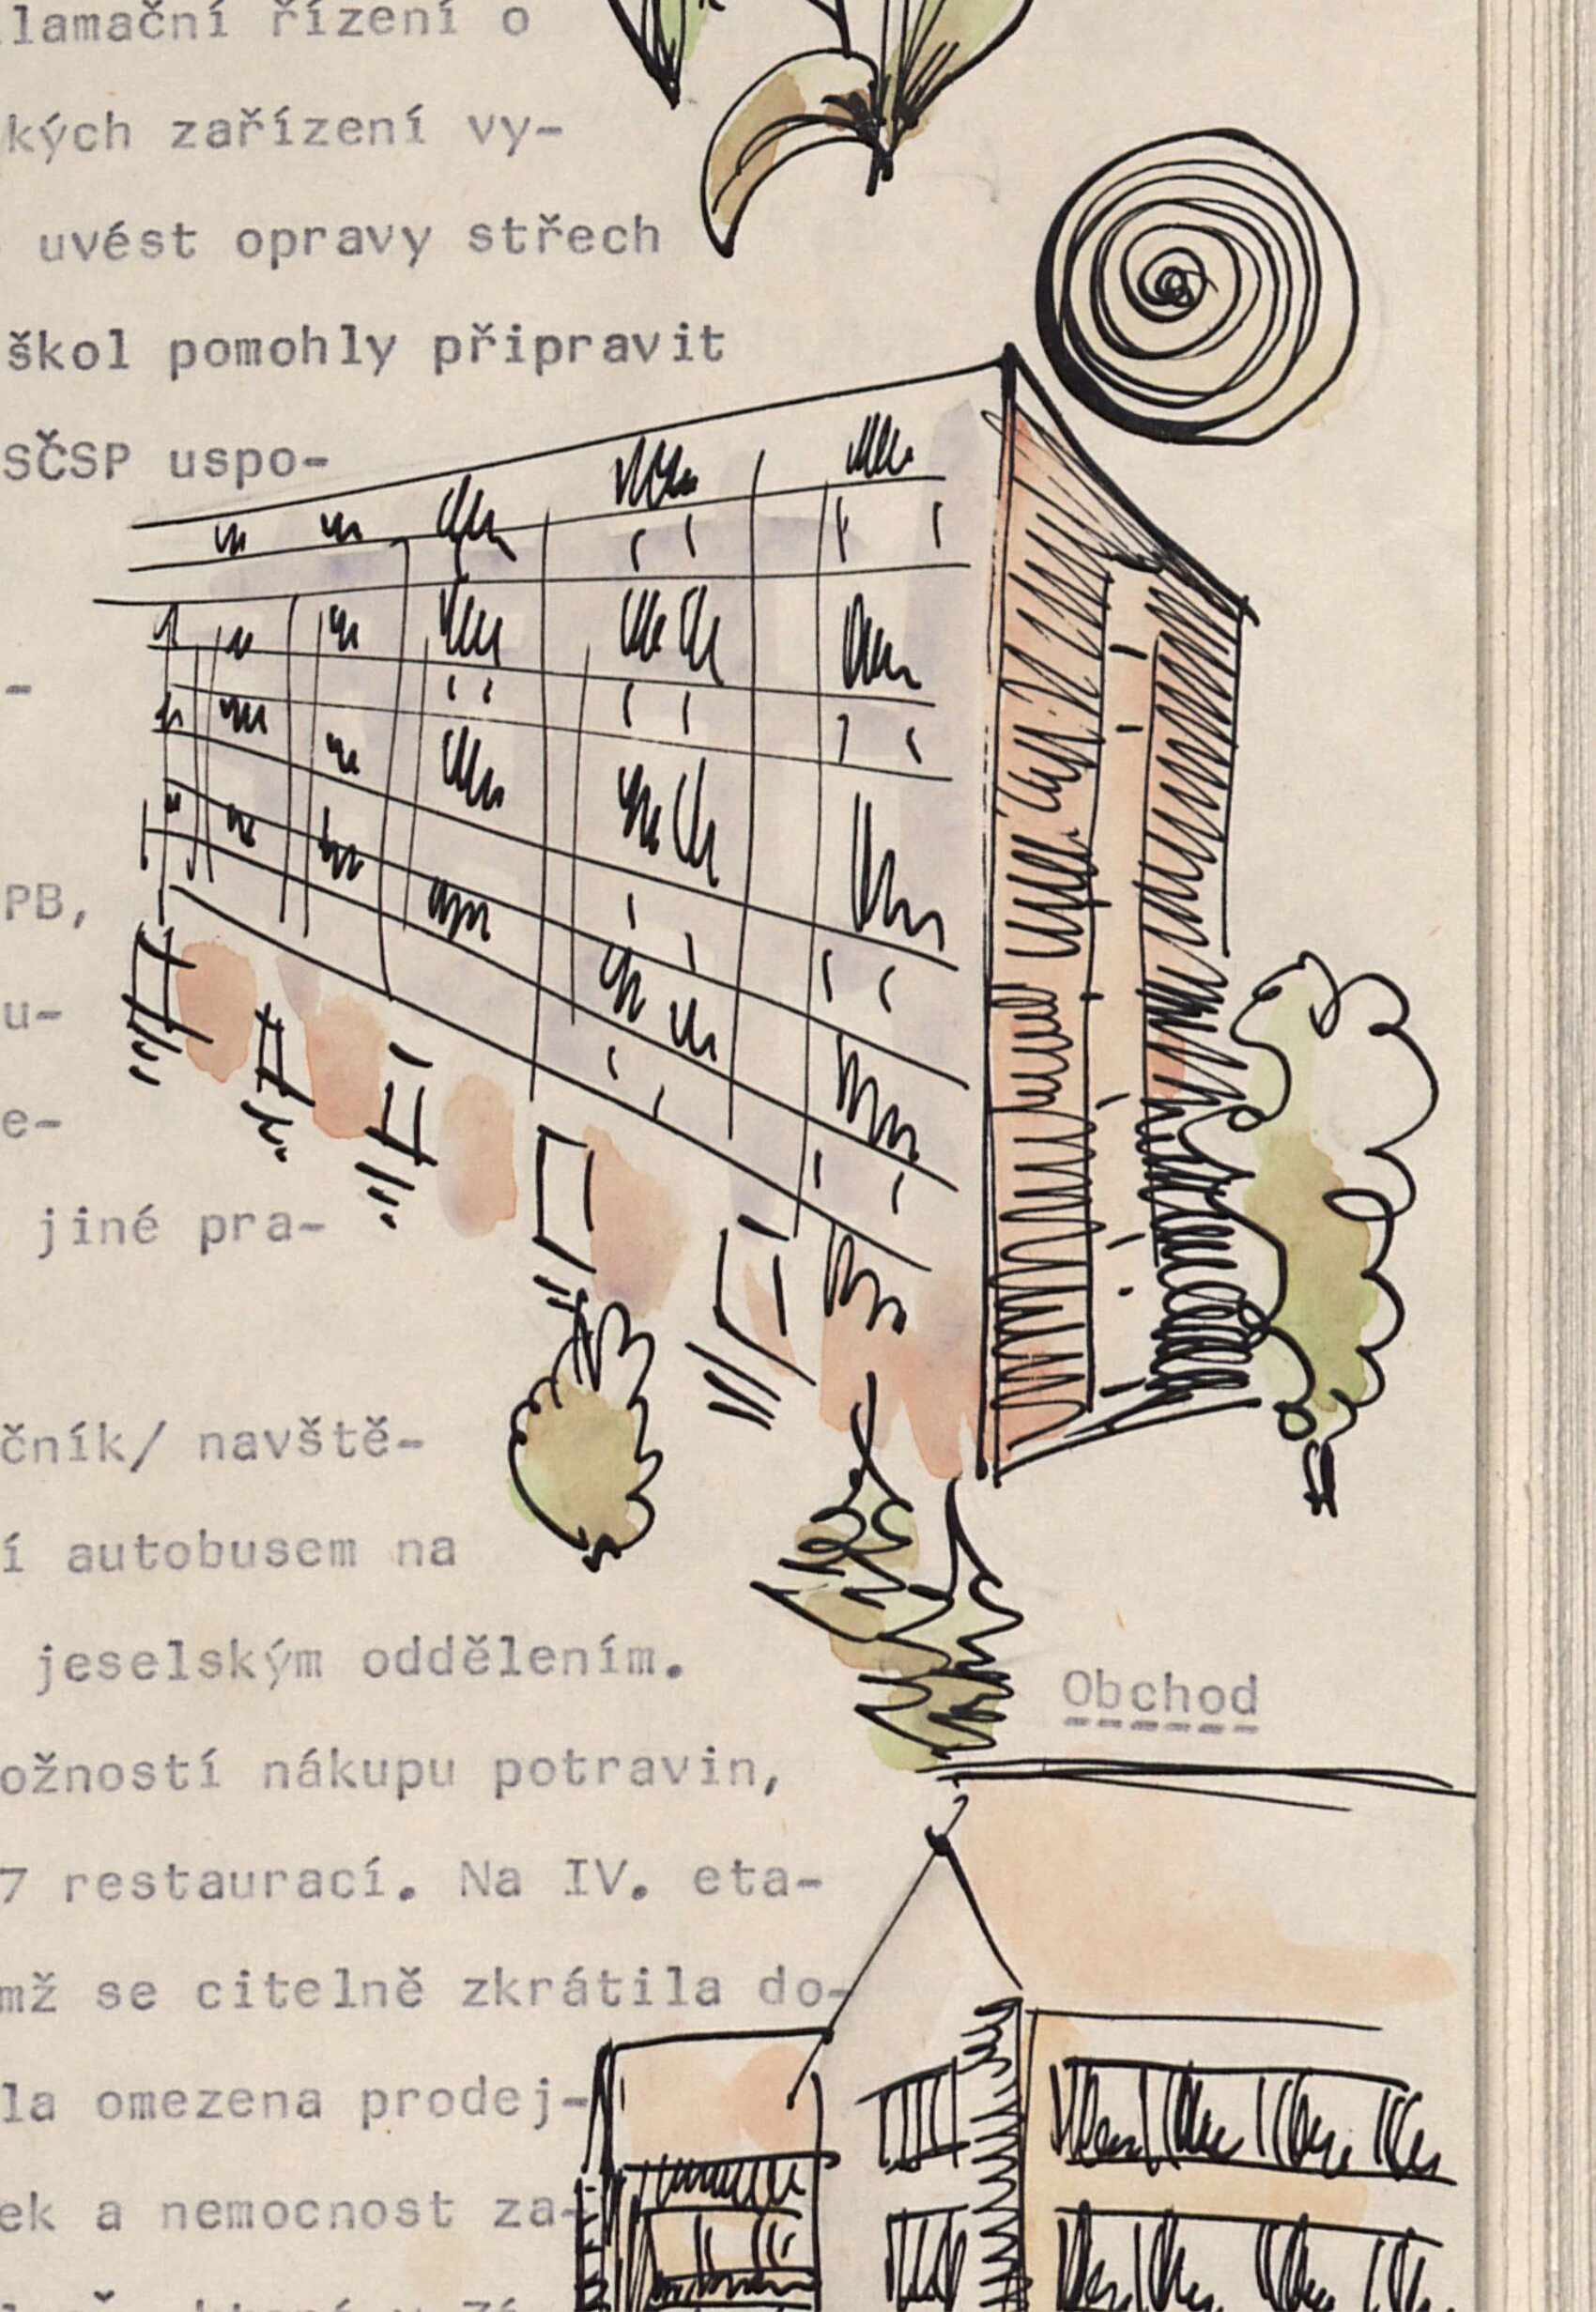 lamační řízení o
kých zařízení vy-
uvést opravy střech
škol pomohly připravit
SČSP uspo-
-
PB,
u-
e-
jiné pra-
čník/ navště-
í autobusem na
jeselským oddělením.
Obchod
ožností nákupu potravin,
7 restaurací. Na IV. eta-
mž se citelně zkrátila do-
la omezena prodej-
ek a nemocnost za-